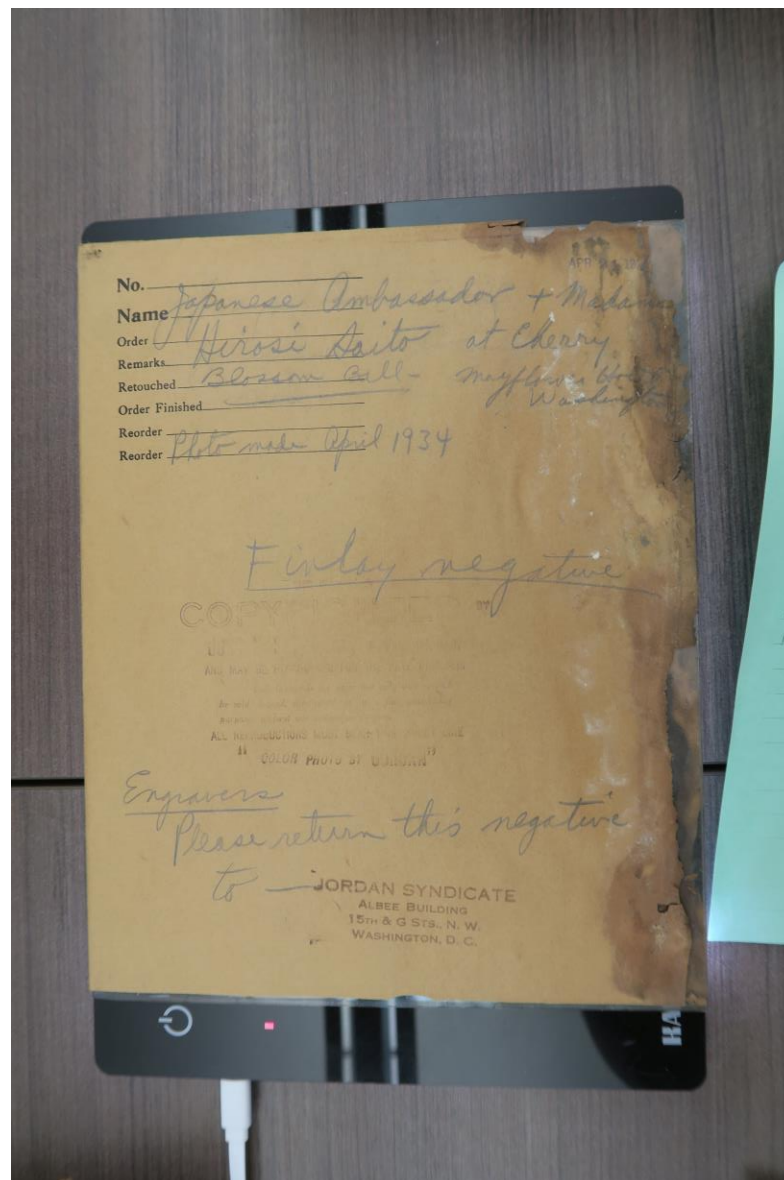 APR
No.
Name Japanese Ambassador + Madame
Order Hirosi Saito at Cherry
Remarks
Retouched Blossom Ball - Mayflower Hotel
Washington
Order Finished
Reorder
Reorder Photo made April 1934
Finlay negative
COPYRIGHTED BY
AND MAY BE
ALL REPRODUCTIONS MUST BEAR
"COLOR PHOTO BY JORDAN"
Engravers
Please return this negative
to — JORDAN SYNDICATE
ALBEE BUILDING
15TH & G STS., N. W.
WASHINGTON, D. C.
HA